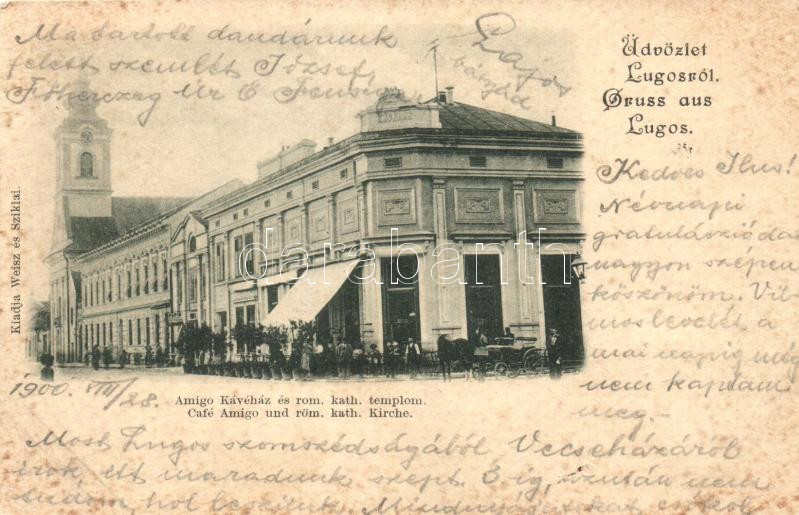 Ma tartotta dandárunk
felett szemlét József
Főherczeg Úr Ő Fensége
Lajos
bátyád
Üdvözlet
Lugosról.
Gruss aus
Lugos.
Kedves Ilus!
Névnapi
gratulációdat
nagyon szépen
köszönöm. Vil-
mos levelét a
mai napig még
nem kaptam
meg.-
Kiadja Weisz és Sziklai.
darabanth.com
1900. VIII/28.
Amigo Kávéház és rom. kath. templom.
Café Amigo und röm. kath. Kirche.
Most Lugos szomszédságából Vecseházáról
írok, itt maradunk szept. 6 ig, azután nem
tudom, hol leszünk. Mindnyájatokat csókol